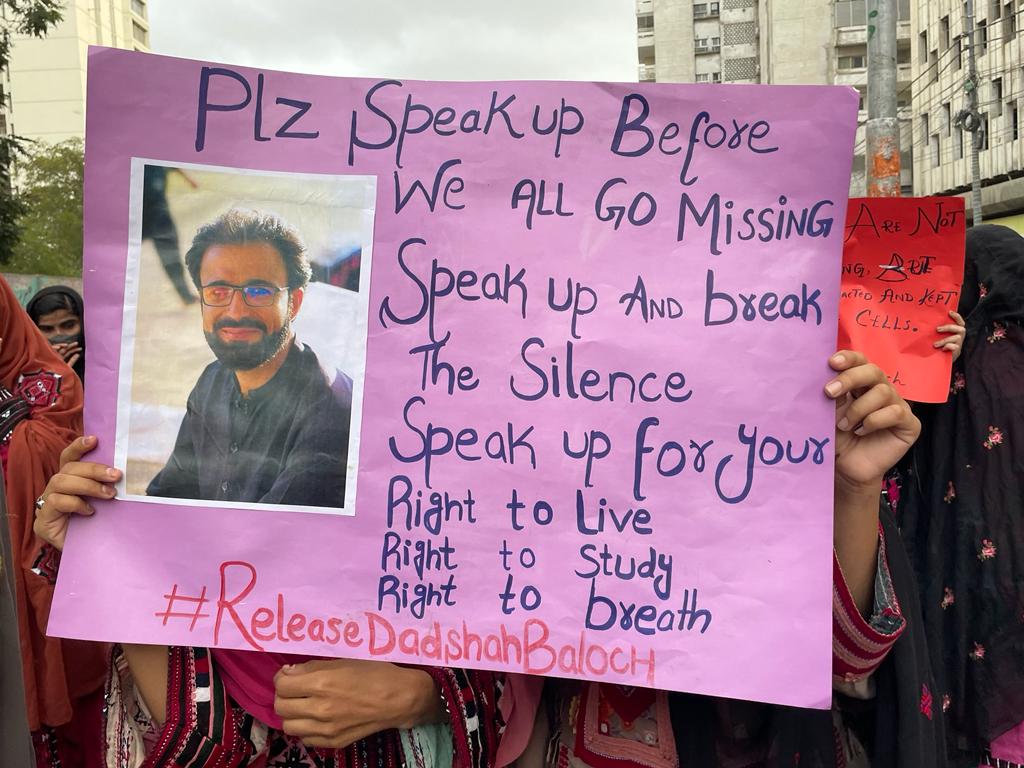 Plz Speak up Before
We ALL GO Missing
Speak up AND break
The Silence
Speak up for your
Right to Live
Right to study
Right to breath
#ReleaseDadshahBaloch
ARE NOT
ARE
AND KEPT
CELLS.